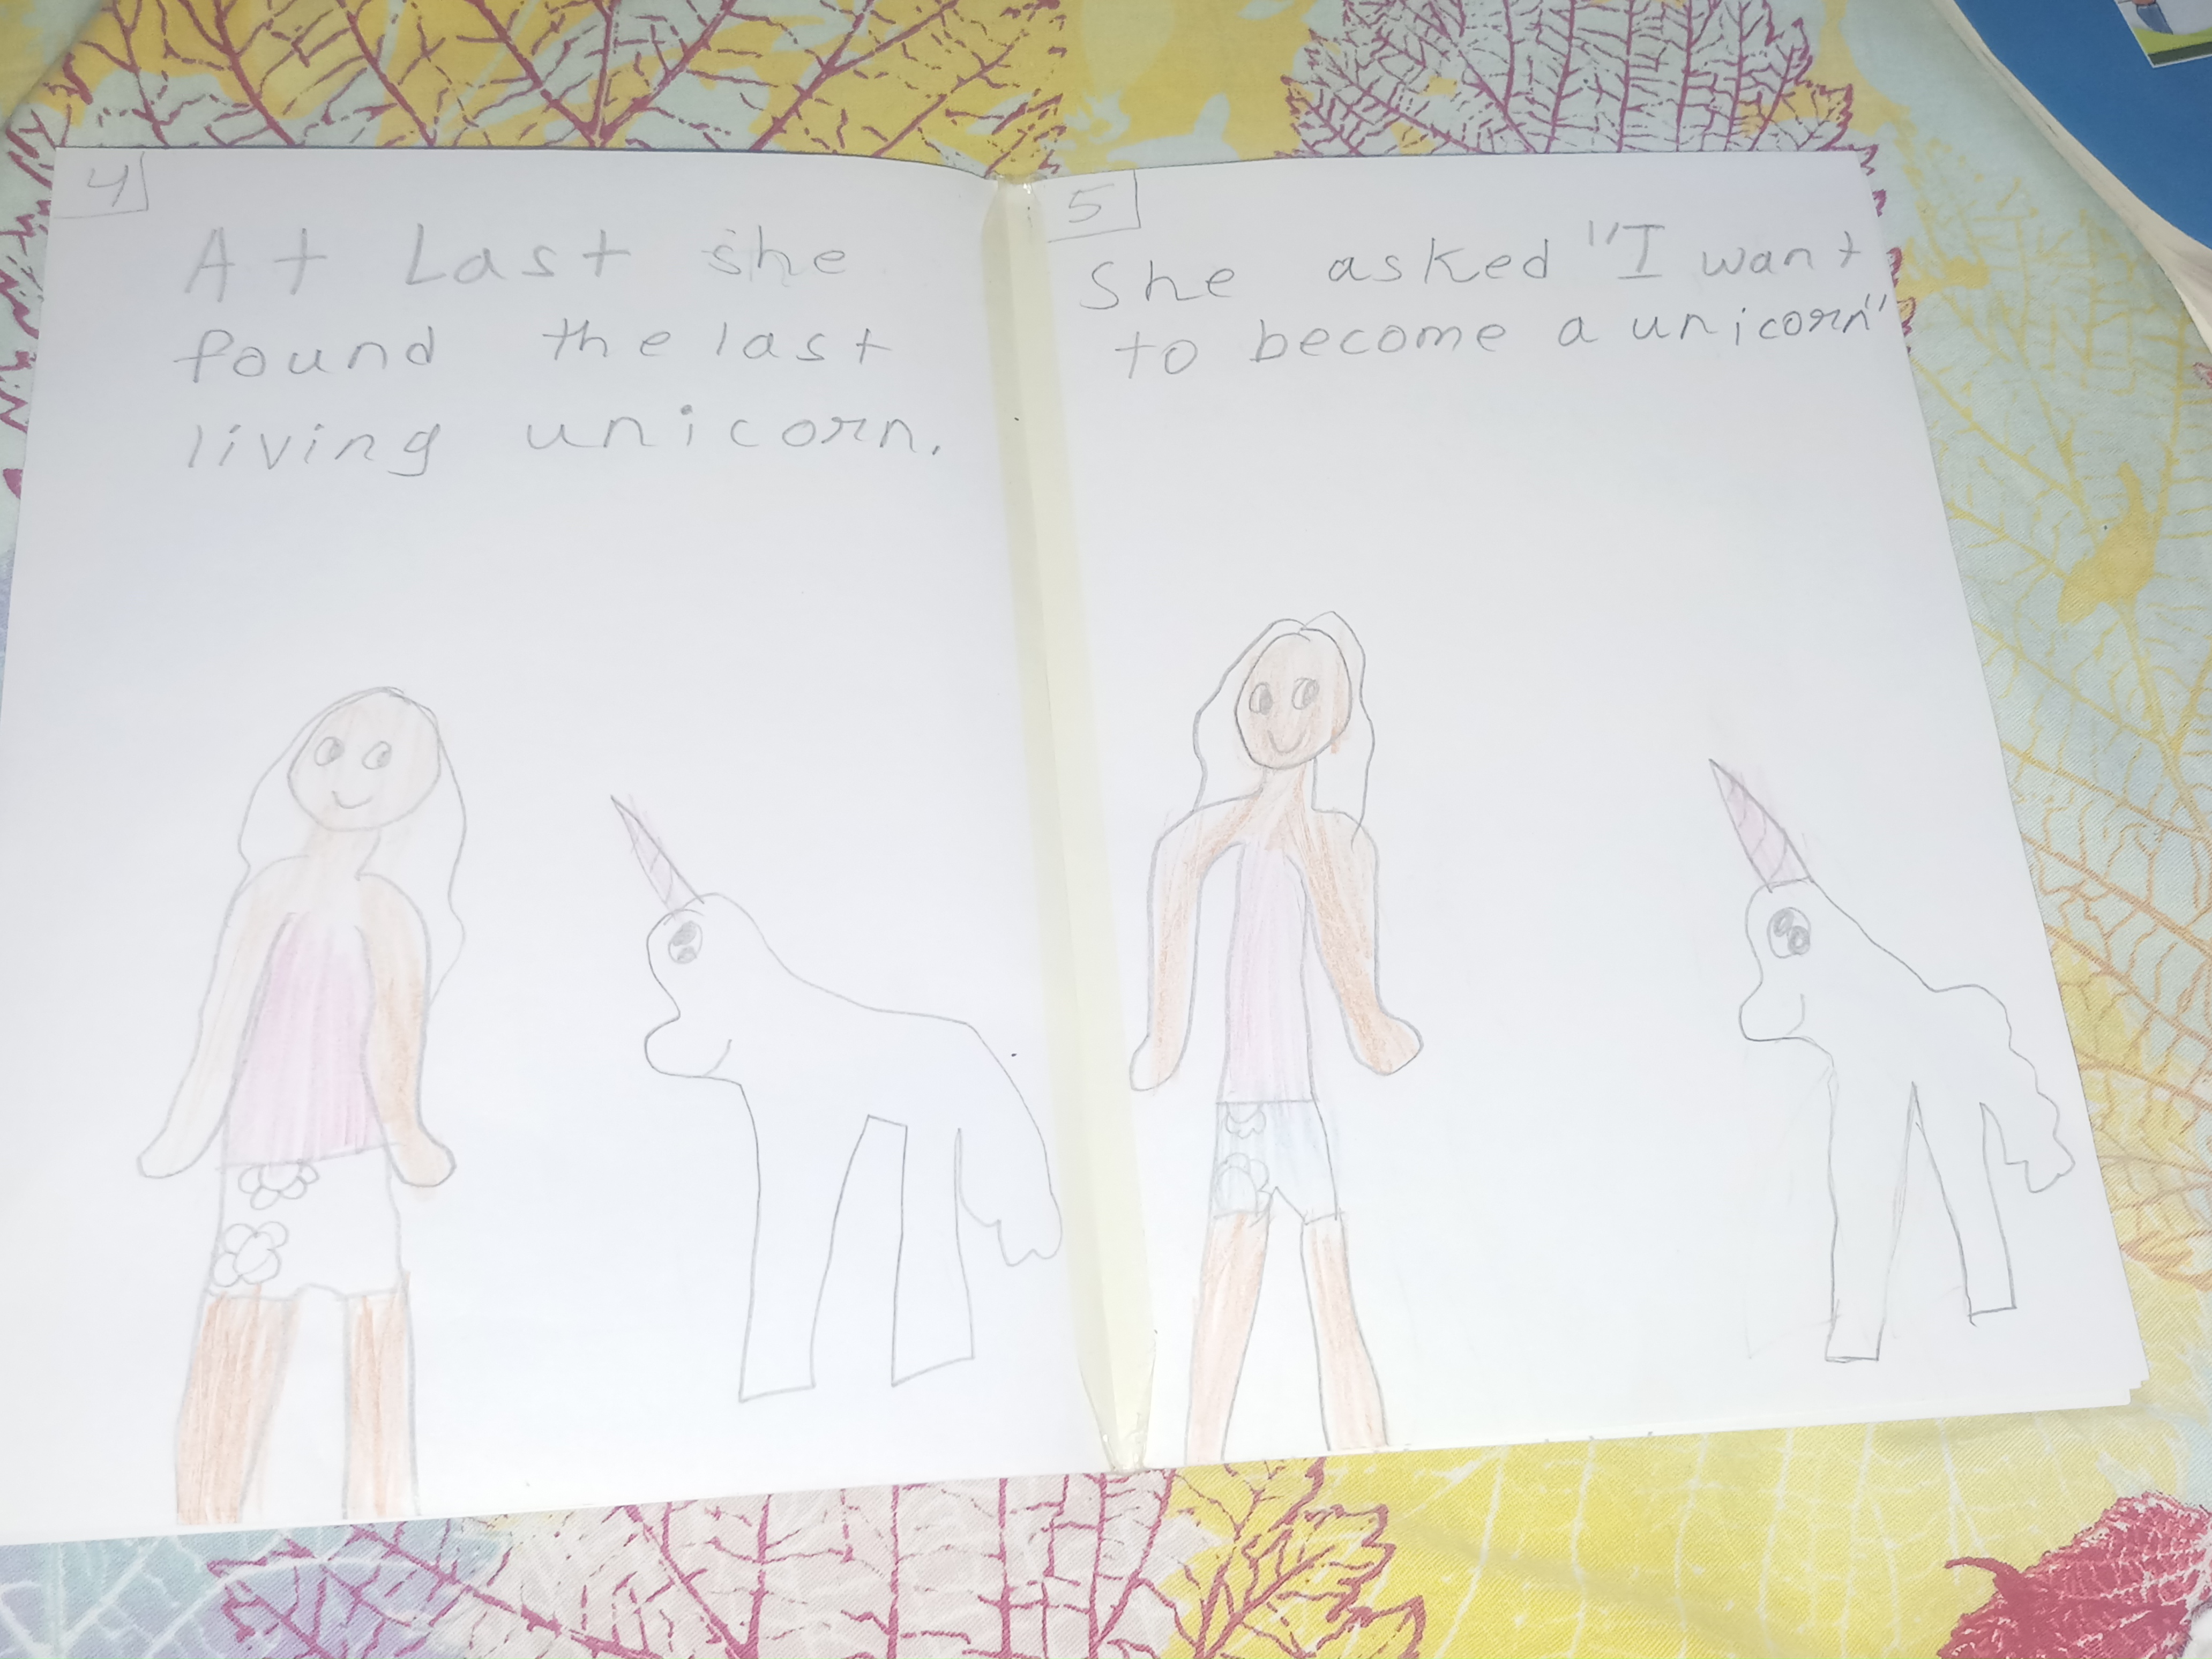 4
At Last she
found the last
living unicorn.
5
She asked "I want
to become a unicorn"